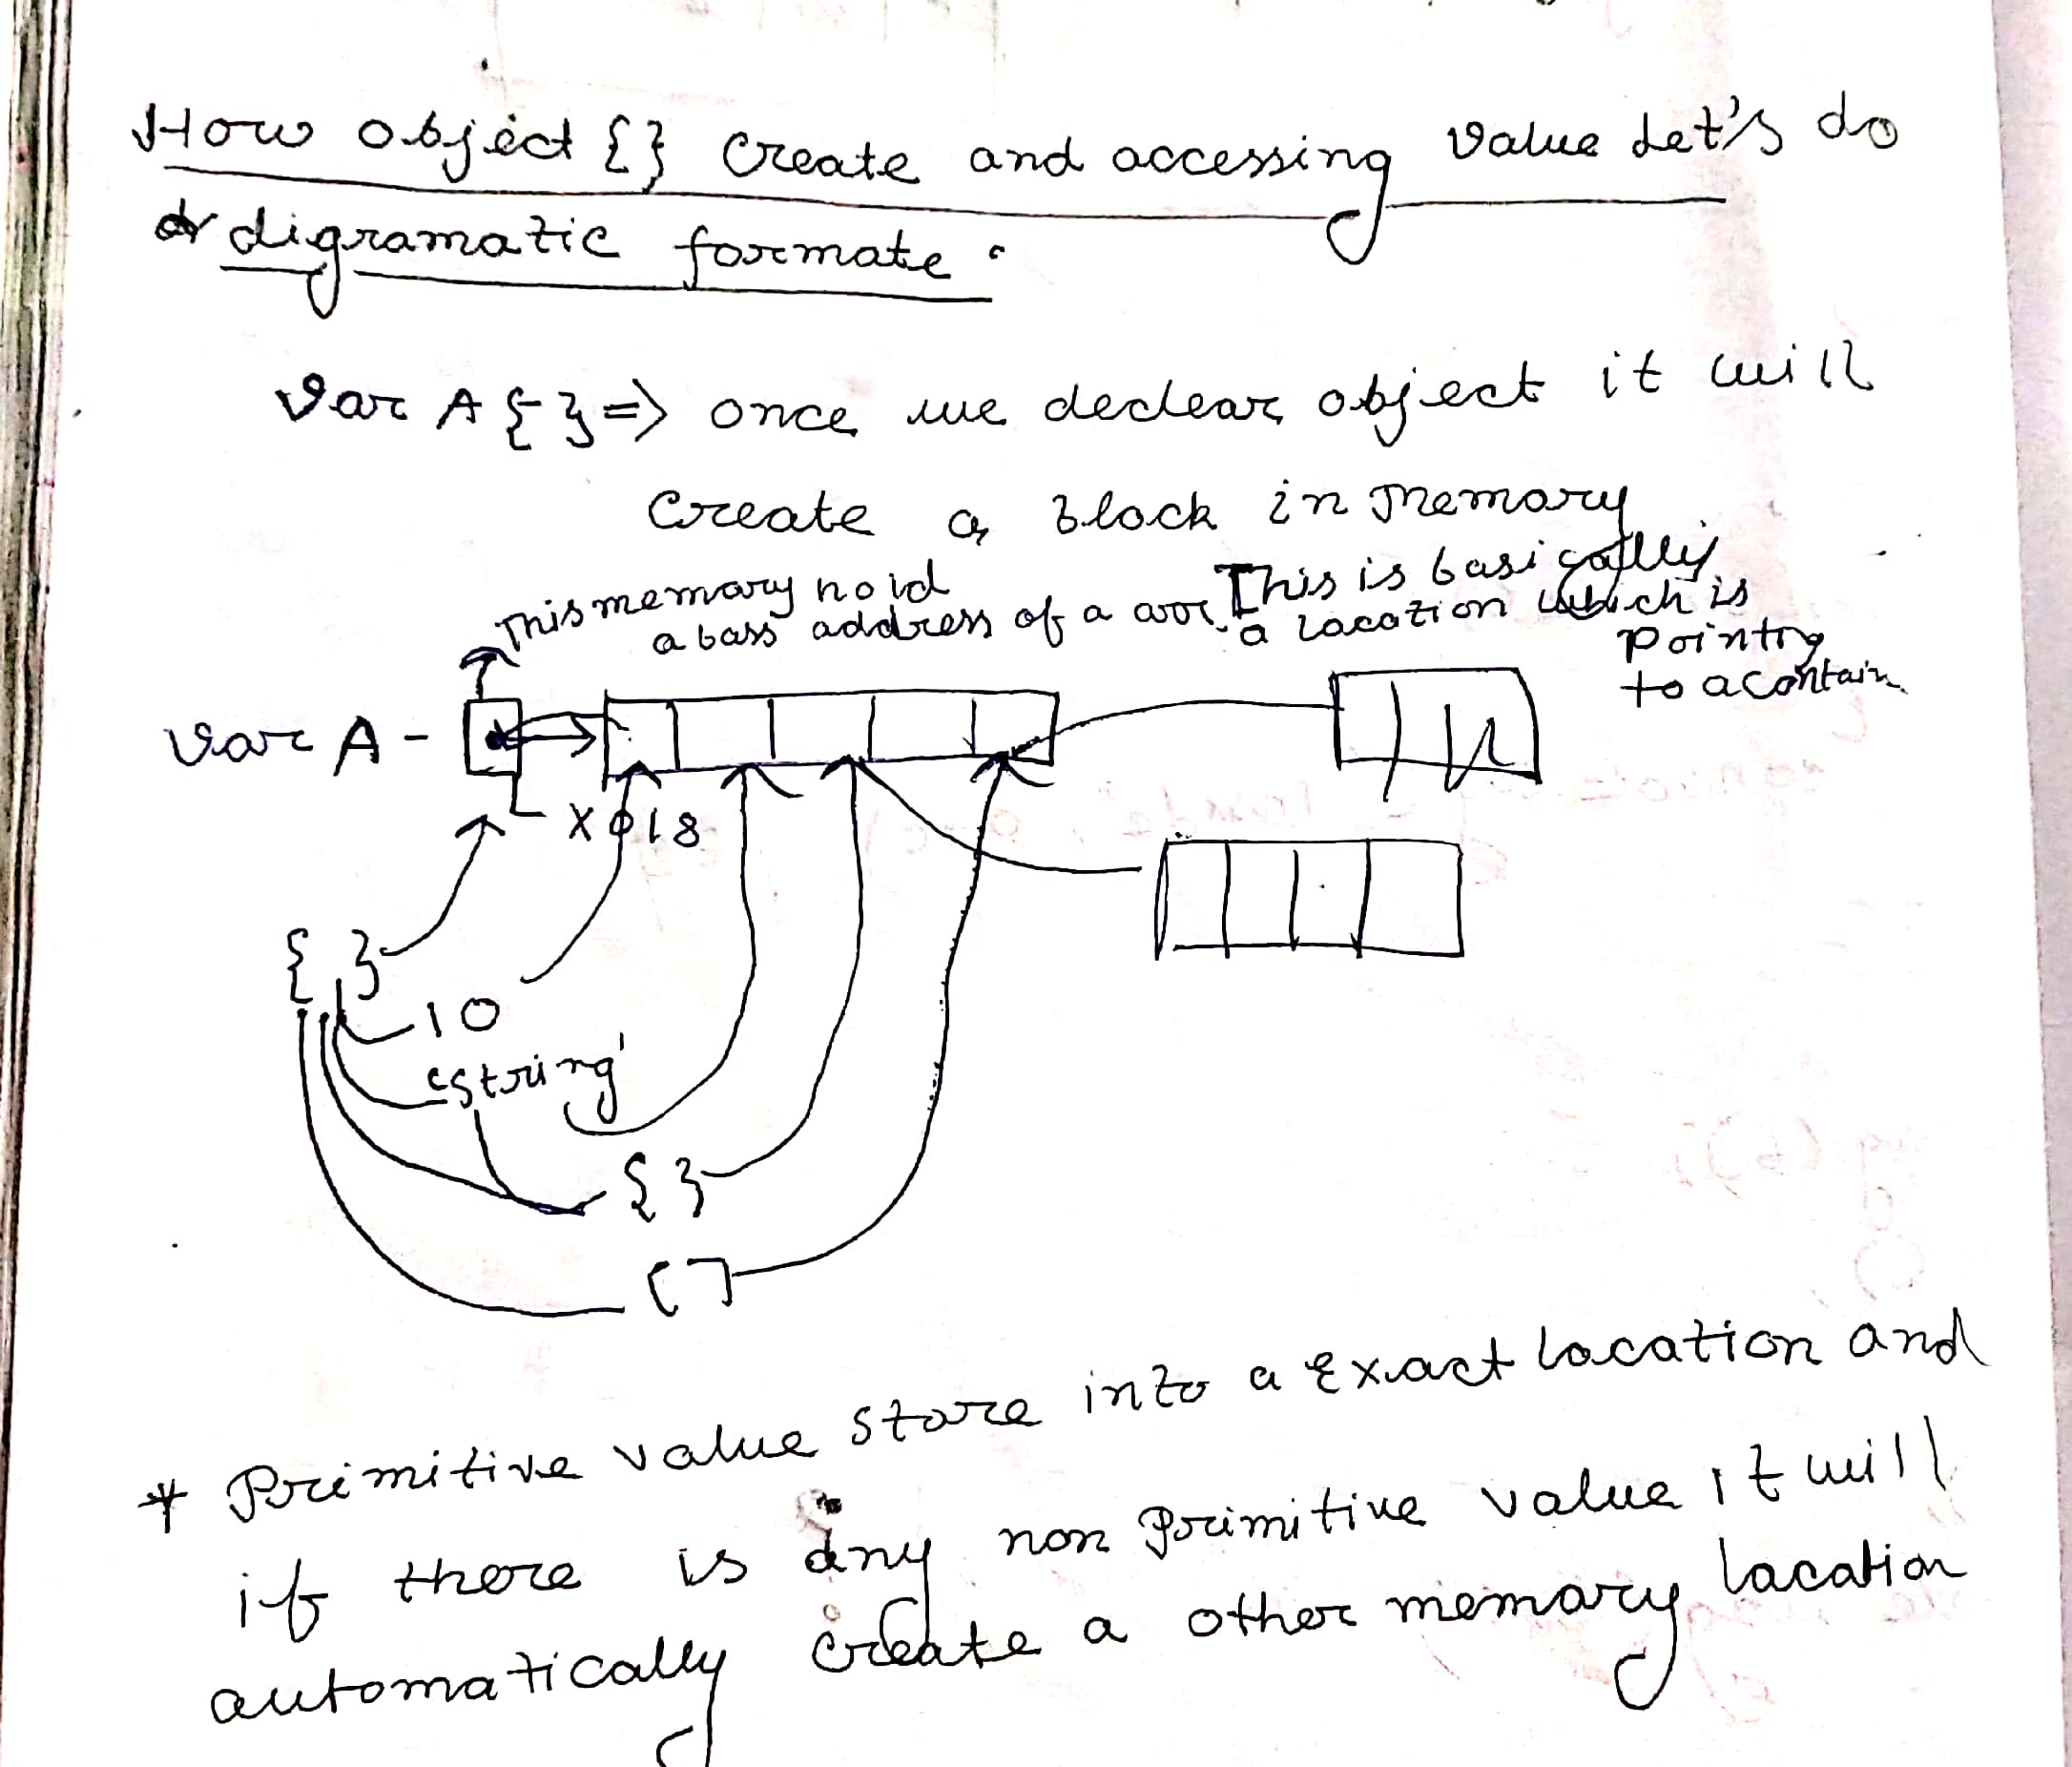 How object {} create and accessing value Let's do
digramatic formate :
var A {} => once we declear object it will
create a block in memory
This memory hold
a bass address of a
This is basically
a location which is
pointing
to a contain
var A -
X018
{ }
10
'string'
{ }
[ ]
* Primitive value store into a exact location and
if there is any non primitive value it will
automatically create a other memory location